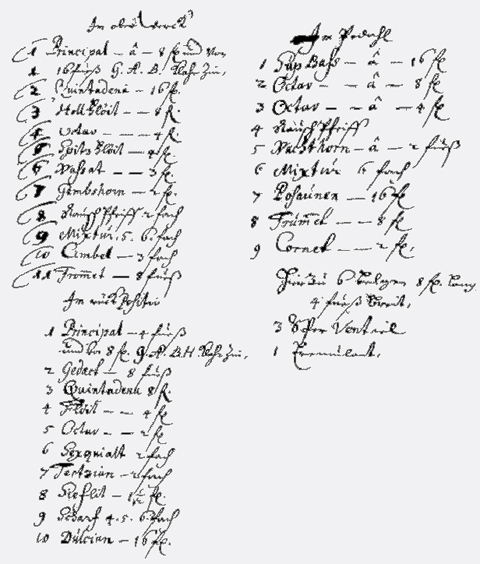 Im oberwerck
1 Principal – â – 8 fs und von
16 fueß G. A. B. Klahr Zin,
2 Quintadena – 16 fs.
3 Holl flöit – 8 fs
4 Octav – – – 4 fs
5 Spitz flöit – 4 fs
6 Nassat – – 3 fs.
7 Gembshorn – 2 fs.
8 Rausch Pfeiff 2 fach
9 Mixtur. 5. 6. fach
10 Cimbel – 3 fach
11 Trommet – 8 fueß
Im rück Positiv
1 Principal – 4 fueß
und von 8 fs. G. A. B. H Klahr Zin,
2 Gedact – 8 fueß
3 Quintadena 8 fs.
4 Flöit – – 4 fs
5 Octav – – 2 fs
6 Sexquialt 2 fach
7 Tertzian – 2 fach
8 Siefflit – 1½ fs.
9 Scharf 4. 5. 6 fach
10 Dulcian – 16 fs.
Im Pedahl
1 Sup Baß – â – 16 fs
2 Octav – – â – 8 fs
3 Octav – – â – 4 fs
4 Rausch Pfeiff
5 Nachthorn – â – 2 fueß
6 Mixtur 6 fach
7 Posaunen – 16 fs
8 Trummet – – 8 fs
9 Cornet – – 2 fs.
Hier zu 6 belgen 8 fs. lang
4 fueß breit,
3 Sper Ventiel
1 Tremulant,